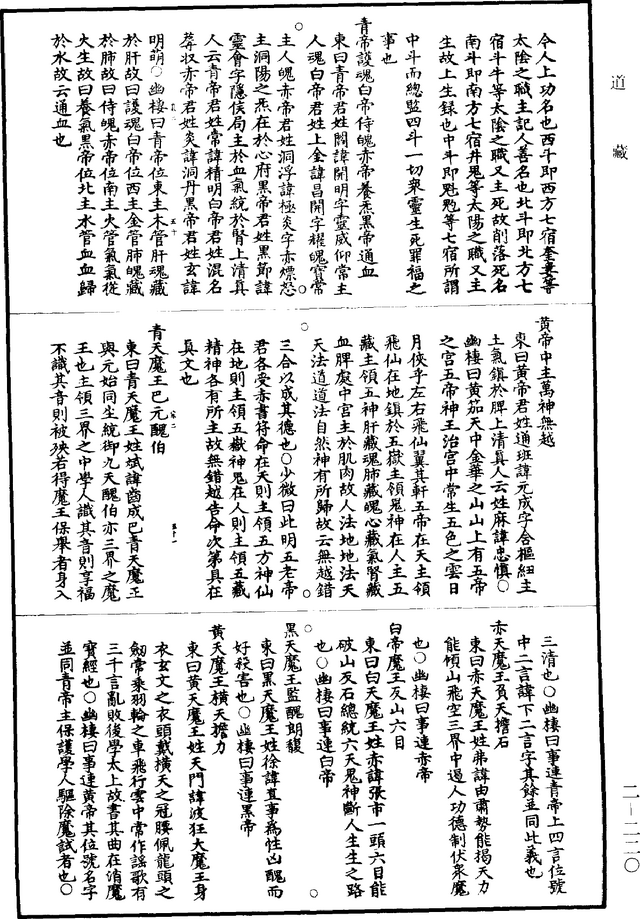 道藏
令人上功名也西斗即西方七宿奎婁等
太陰之職主記人善名也北斗即北方七
宿斗牛等太陰之職又主死故削落死名
南斗即南方七宿井鬼等太陽之職又主
生故上生錄也中斗即魁魒等七宿所謂
中斗而總監四斗一切衆靈生死罪福之
事也
青帝護魂白帝侍魄赤帝養炁黑帝通血
東曰青帝君姓閻諱開明字靈威仰常主
人魂白帝君姓上金諱昌開字耀魄寶常
主人魄赤帝君姓洞浮諱極炎字赤熛怒
主洞陽之炁在於心府黑帝君姓黑節諱
靈會字隱侯局主於血氣統於腎上清真
人云青帝君姓常諱精明白帝君姓混名
蓐収赤帝君姓炎諱洞丹黑帝君姓玄諱
明萌○幽棲曰青帝位東主木管肝魂藏
於肝故曰護魂白帝位西主金管肺魄藏
於肺故曰侍魄赤帝位南主火管氣氣從
火生故曰養氣黑帝位北主水管血血歸
於水故云通血也
黄帝中主萬神無越
東曰黄帝君姓通班諱元成字含樞紐主
土氣鎮於脾上清真人云姓麻諱忠慎○
幽棲曰黄笳天中金華之山山上有五帝
之宫五帝神王治宫中常生五色之雲日
月侠乎左右飛仙翼其軒五帝在天主領
飛仙在地鎮於五嶽主領鬼神在人主五
藏主領五神肝藏魂肺藏魄心藏氣腎藏
血脾處中宫主於肌肉故人法地地法天
天法道道法自然神有所歸故云無越錯
三合以成其德也○少微曰此明五老帝
君各受赤書符命在天則主領五方神仙
在地則主領五嶽神鬼在人則主領五藏
精神各有所主故無錯越告命次第具在
真文也
青天魔王巴元醜伯
東曰青天魔王姓斌諱齒成巴青天魔王
與元始同生統御九天醜伯亦三界之魔
王也主領三界之中學人識其音則享福
不識其音則被殃若得魔王保舉者身入
三清也○幽棲曰事連青帝上四言位號
中二言諱下二言字其餘並同此義也
赤天魔王負天擔石
東曰赤天魔王姓弗諱由肅勢能揭天力
能傾山飛空三界中過人功德制伏衆魔
也○幽棲曰事連赤帝
白帝魔王反山六目
東曰白天魔王姓赤諱張市一頭六目能
破山反石總統六天鬼神斷人生生之路
也○幽棲曰事連白帝
黑天魔王監醜朗馥
東曰黑天魔王姓徐諱直事為性凶醜而
好殺害也○幽棲曰事連黑帝
黄天魔王横天擔力
東曰黄天魔王姓天門諱波狂大魔王身
衣玄文之衣頭戴横天之冠腰佩龍頭之
劒常乘羽輪之車飛行雲中常作謡歌有
三千言亂敗後學太上故書其曲在消魔
寶經也○幽棲曰事連黄帝其位號名字
並同青帝主保護學人驅除魔試者也○
二－二二〇